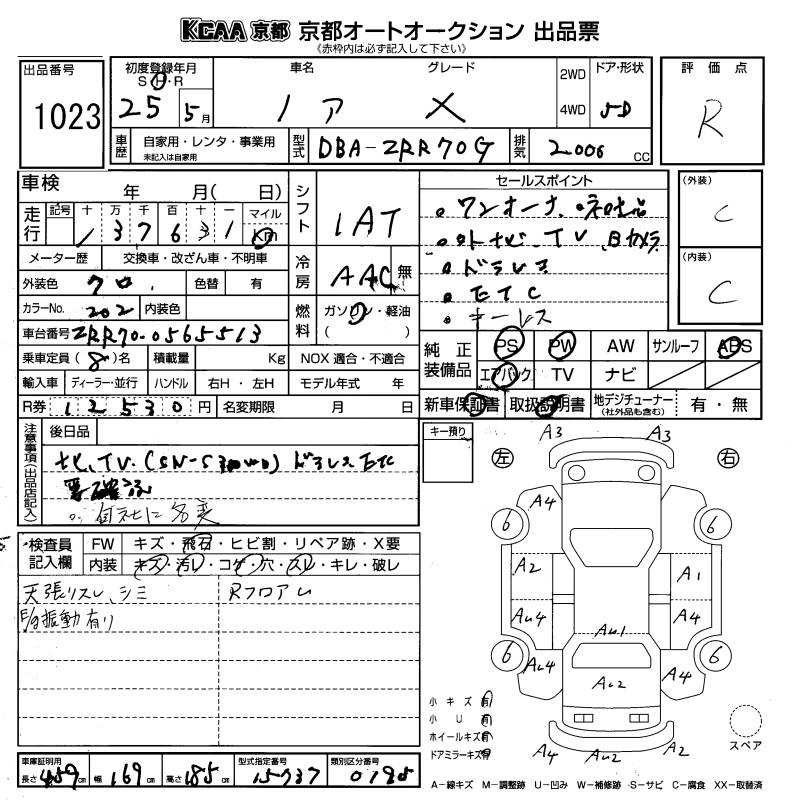 KCAA 京都 京都オートオークション 出品票
《赤枠内は必ず記入して下さい》
出品番号
1023
初度登録年月
S・H・R
25 5月
車名 グレード
ノア X
2WD
4WD
ドア・形状
5D
評価点
R
車歴 自家用・レンタ・事業用
未記入は自家用
型式 DBA-ZRR70G
排気 2.000 CC
車検 年 月( 日)
走行 記号 十 万 千 百 十 一 マイル
1 3 7 6 3 1 Km
メーター歴 交換車・改ざん車・不明車
外装色 クロ 色替 有
カラーNo. 202 内装色
車台番号 ZRR70-0565513
乗車定員 (8)名 積載量 Kg
輸入車 ディーラー・並行 ハンドル 右H・左H
R券 12530円 名変期限 月 日
シフト 1AT
冷房 AAC 無
燃料 ガソリン・軽油
( )
NOX 適合・不適合
モデル年式 年
セールスポイント
ワンオーナ
外ナビ、TV、Bカメラ
ドラレコ
ETC
キーレス
(外装)
C
(内装)
C
純正装備品 PS PW AW サンルーフ ABS
エアバック TV ナビ
新車保証書 取扱説明書 地デジチューナー
(社外品も含む) 有・無
注意事項(出品店記入)
後日品
ナビ、TV. ドラレコ ETC
要確認
自社に名変
検査員記入欄
FW キズ・飛石・ヒビ割・リペア跡・X要
内装 キズ・汚レ・コゲ・穴・スレ・キレ・破レ
天張リスレ、シミ Rフロアム
E/g振動有り
キー預り
左 右
A3 A3
A4 A4
6 6
A2 A1
AU4 A4
AU1
6 6
AU4 A4
AU2
A4 AU2 A2
小キズ 有
小U 有
ホイールキズ 有
ドアミラーキズ 有
スペア
車庫証明用
長さ 459cm 幅 169cm 高さ 185cm
型式指定番号 15737
類別区分番号 0185
A−線キズ M−調整跡 U−凹み W−補修跡 S−サビ C−腐食 XX−取替済